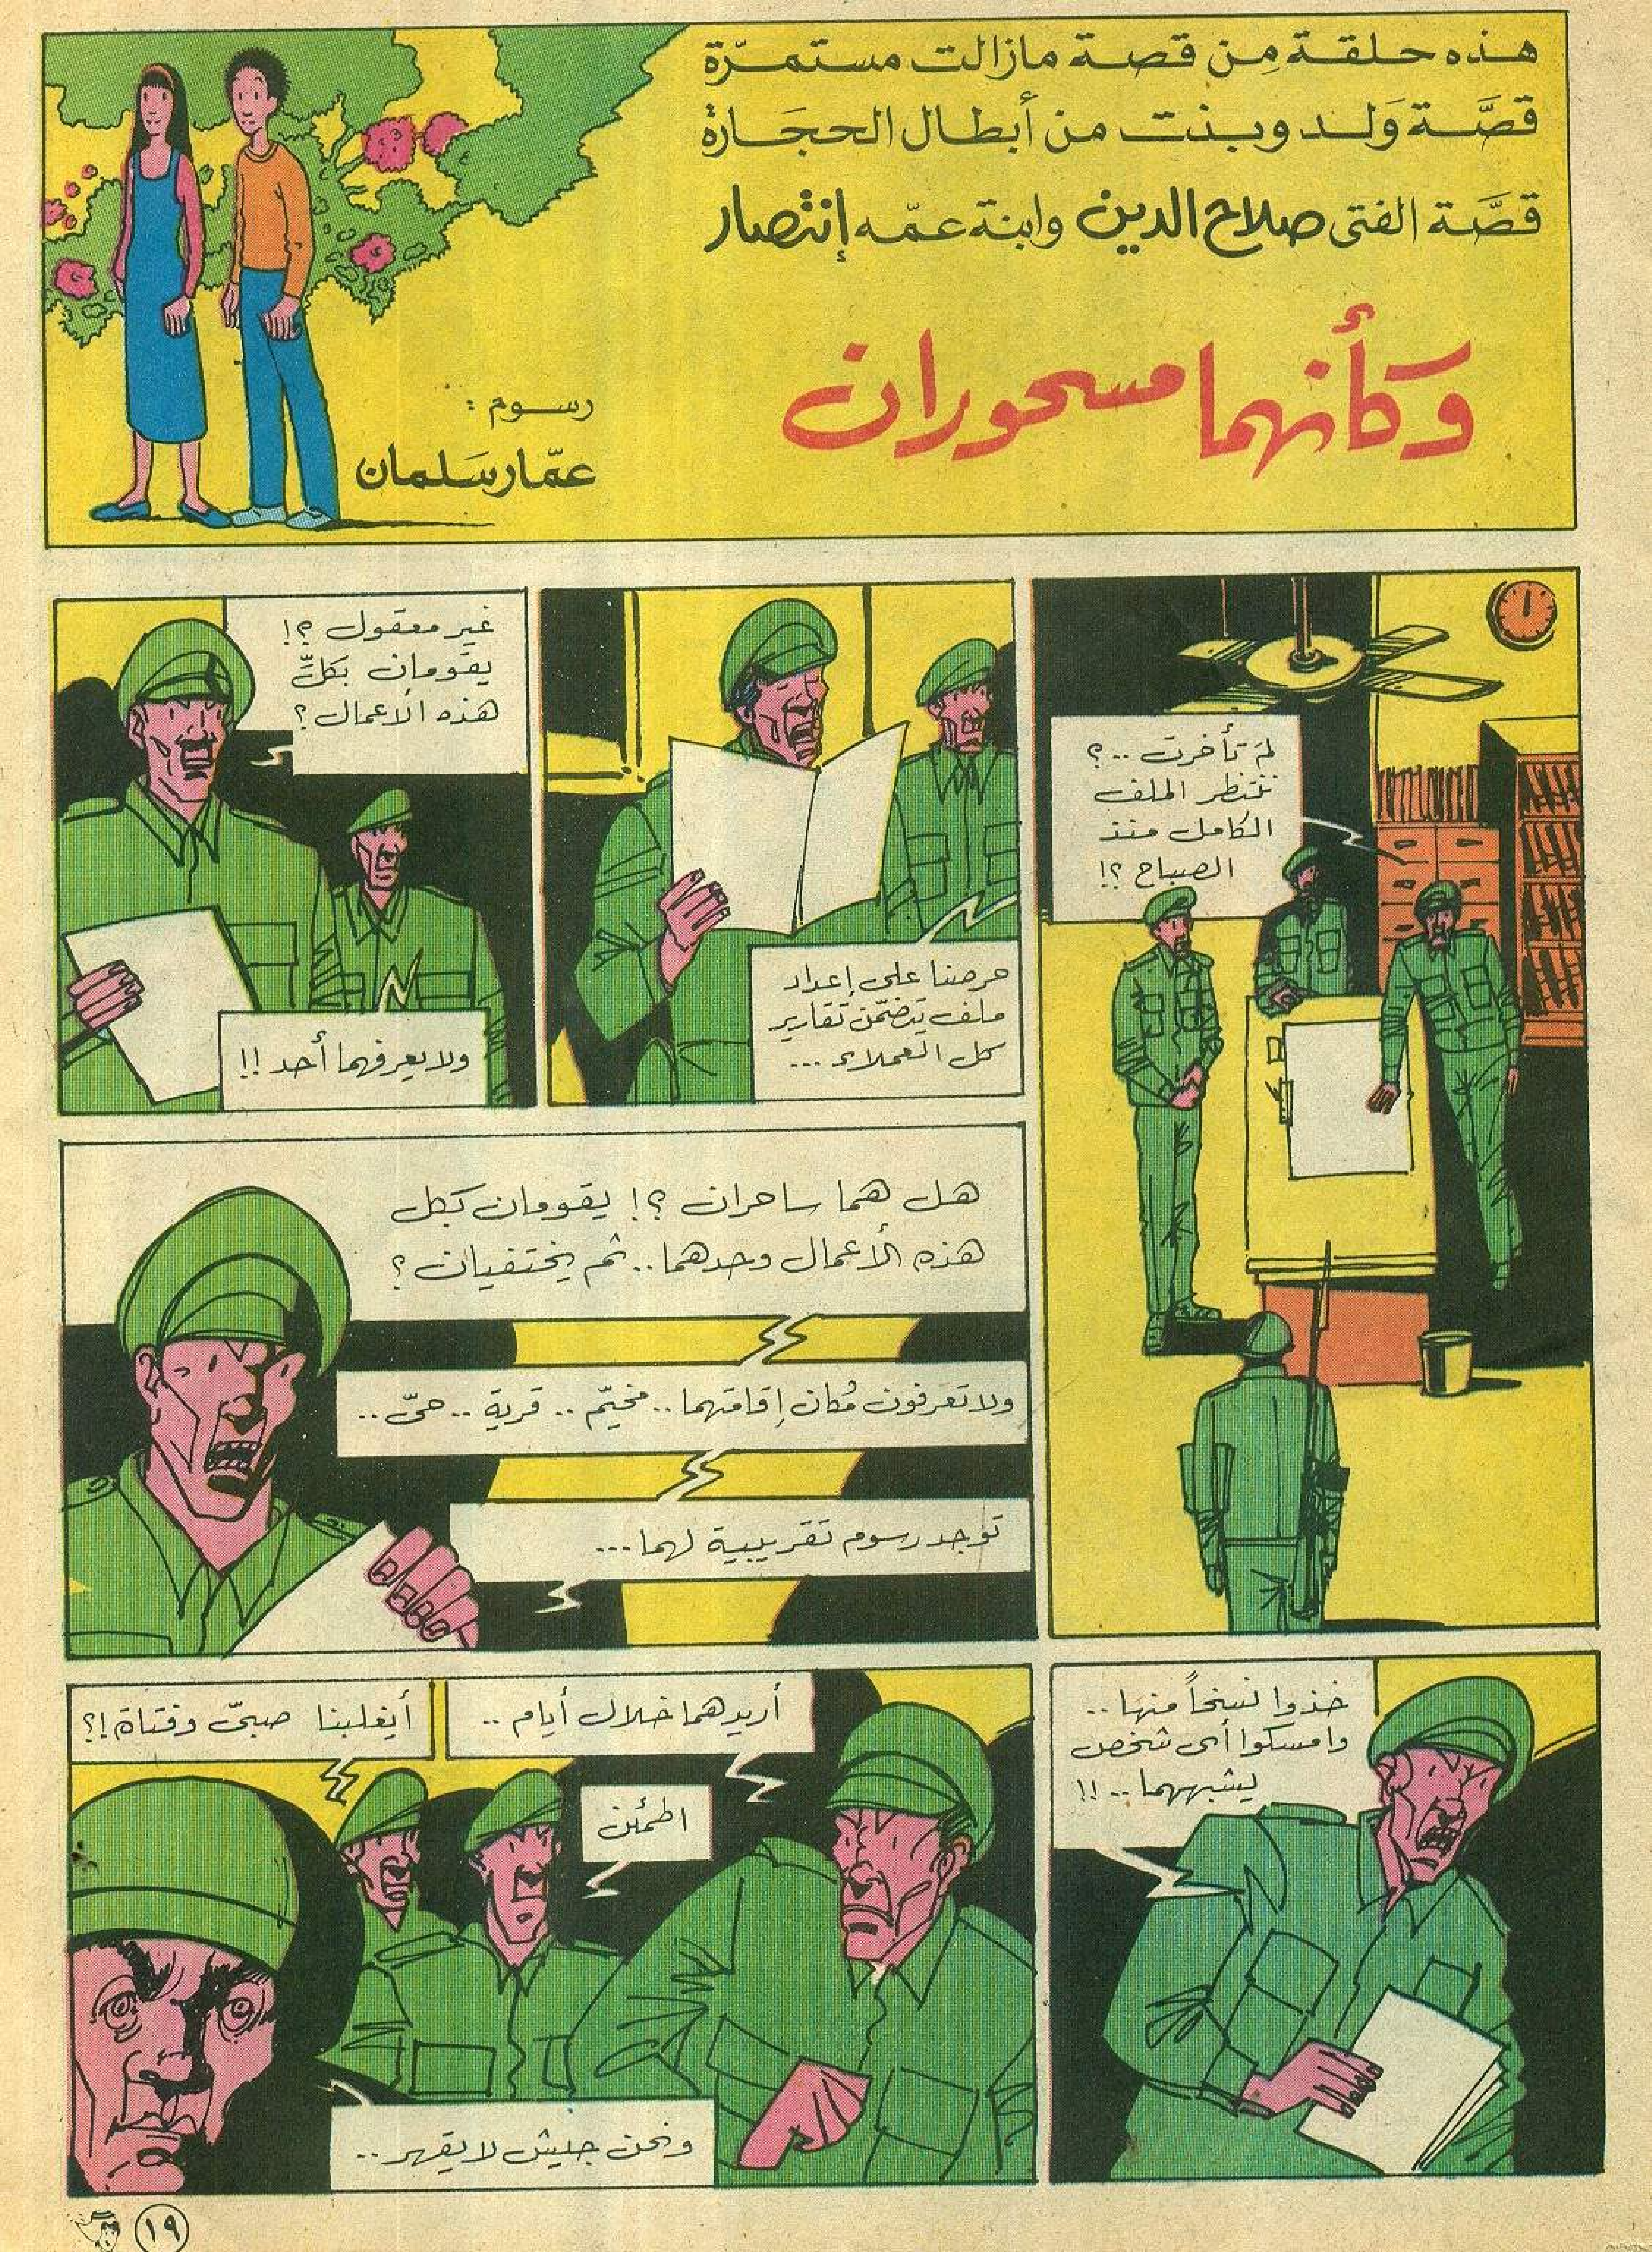 هذه حلقة مِن قصة مازالت مستمرّة
قصَّة وَلد وبنت من أبطال الحجَارة
قصَّة الفتى صلاح الدين وابنة عمّه إنتصار
وكأنهما مسحوران
رسوم :
عمّار سَلمان
لمَ تأخرت ..؟
ننتظر الملف
الكامل منذ
الصباح ؟!
حرصنا على إعداد
ملف يتضمّن تقارير
كل العملاء ...
غير معقول ؟!
يقومان بكلّ
هذه الأعمال ؟
ولا يعرفهما أحد !!
هل هما ساحران ؟! يقومان بكل
هذه الأعمال وحدهما .. ثم يختفيان ؟
ولا تعرفون مُكان إقامتهما .. مخيّم .. قرية .. حىّ ..
توجد رسوم تقريبية لهما ...
خذوا نسخاً منها ..
وامسكوا أى شخص
يشبههما .. !!
أريدهما خلال أيام ..
اطمئن
أيغلبنا صبىّ وفتاة !؟
ونحن جيش لا يقهر ..
١٩